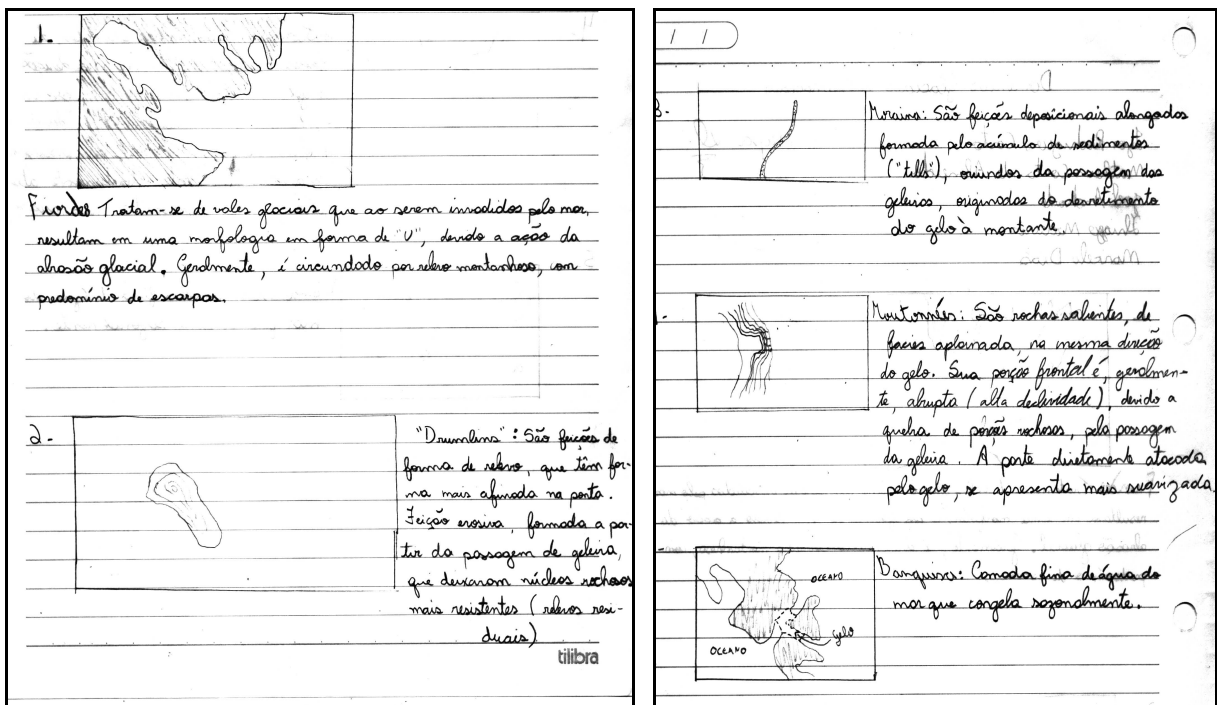 1.
Fiordes Tratam-se de vales glaciais que ao serem invadidos pelo mar,
resultam em uma morfologia em forma de "U", devido a ação da
abrasão glacial. Geralmente, é circundado por relevo montanhoso, com
predomínio de escarpas.
2-
"Drumlins": São feições de
forma de relevo, que têm for-
ma mais afunada na ponta.
Feição erosiva, formada a par-
tir da passagem de geleira,
que deixaram núcleos rochosos
mais resistentes (relevos resi-
duais)
tilibra
/ /
3-
Moraina: São feições deposicionais alongadas
formada pelo acúmulo de sedimentos
("tills"), oriundos da passagem das
geleiras, originados do derretimento
do gelo à montante.
Moutonnés: São rochas salientes, de
facies aplainada, na mesma direção
do gelo. Sua porção frontal é, geralmen-
te, abrupta (alta declividade), devido a
quebra de porções rochosas, pela passagem
da geleira. A parte diretamente atacada
pelo gelo, se apresenta mais suavizada.
OCEANO
gelo
OCEANO
Banquisa: Camada fina de água do
mar que congela sazonalmente.